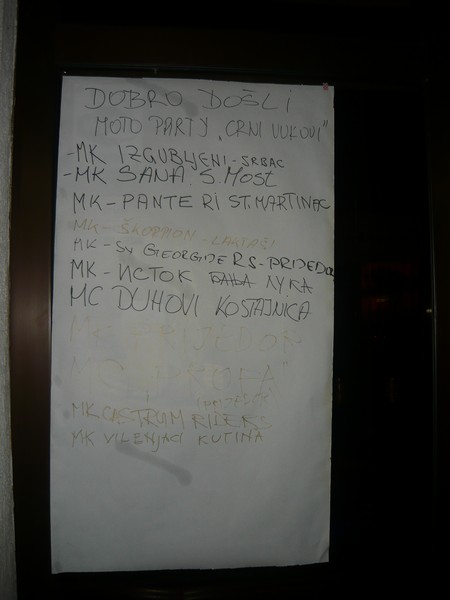 DOBRO DOŠLI
MOTO PARTY „CRNI VUKOVI"
-MK IZGUBLJENI-SRBAC
-MK SANA S. MOST
MK-PANTERI ST. MARTINEC
MK-ŠKORPION-LAKTAŠI
MK-SV GEORGIJE RS-PRIJEDOR
MK-ИСТОК ЛУКА
MC DUHOVI KOSTAJNICA
MK PRIJEDOR
MK CASTRUM RIJEKA
MK VILENJACI KUTINA